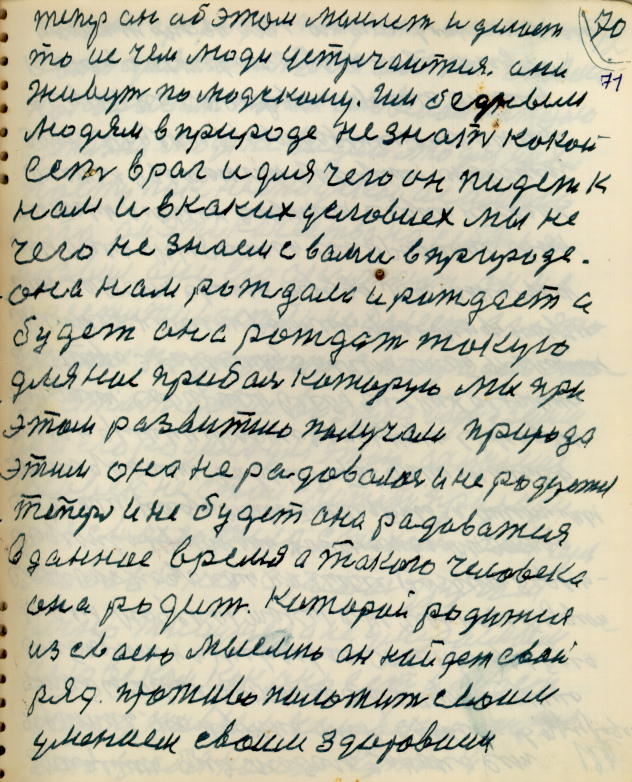 тепер он об этом мыслет и делает 70
то ис чем люди устречаются. они
71
живут по людскому. Им бедным
людям в природе не знат какой
есть враг и для чего он придет к
нам и вкаких условиех мы не
чего не знаем с вами в природе.
она нам рождала и рождает а
будет она рождат такую
для нас прибоя которую мы при
этом развитию получали природа
этим она не радовалася и не радуется
теперь и не будет она радоватися
в данное время а такого человека
она родит. Который родится
из своею мыслию он найдет свой
ряд. противо положит своим
умением своим здоровием